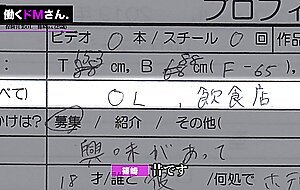 働くドMさん。
プロフィ
ビデオ 0 本 / スチール 0 回
T cm, B cm (F-65),
べて) OL, 飲食店
かけは? 募集 / 紹介 / その他(
興味があって
篠崎
18才/誰と 彼 /何処で ホテ